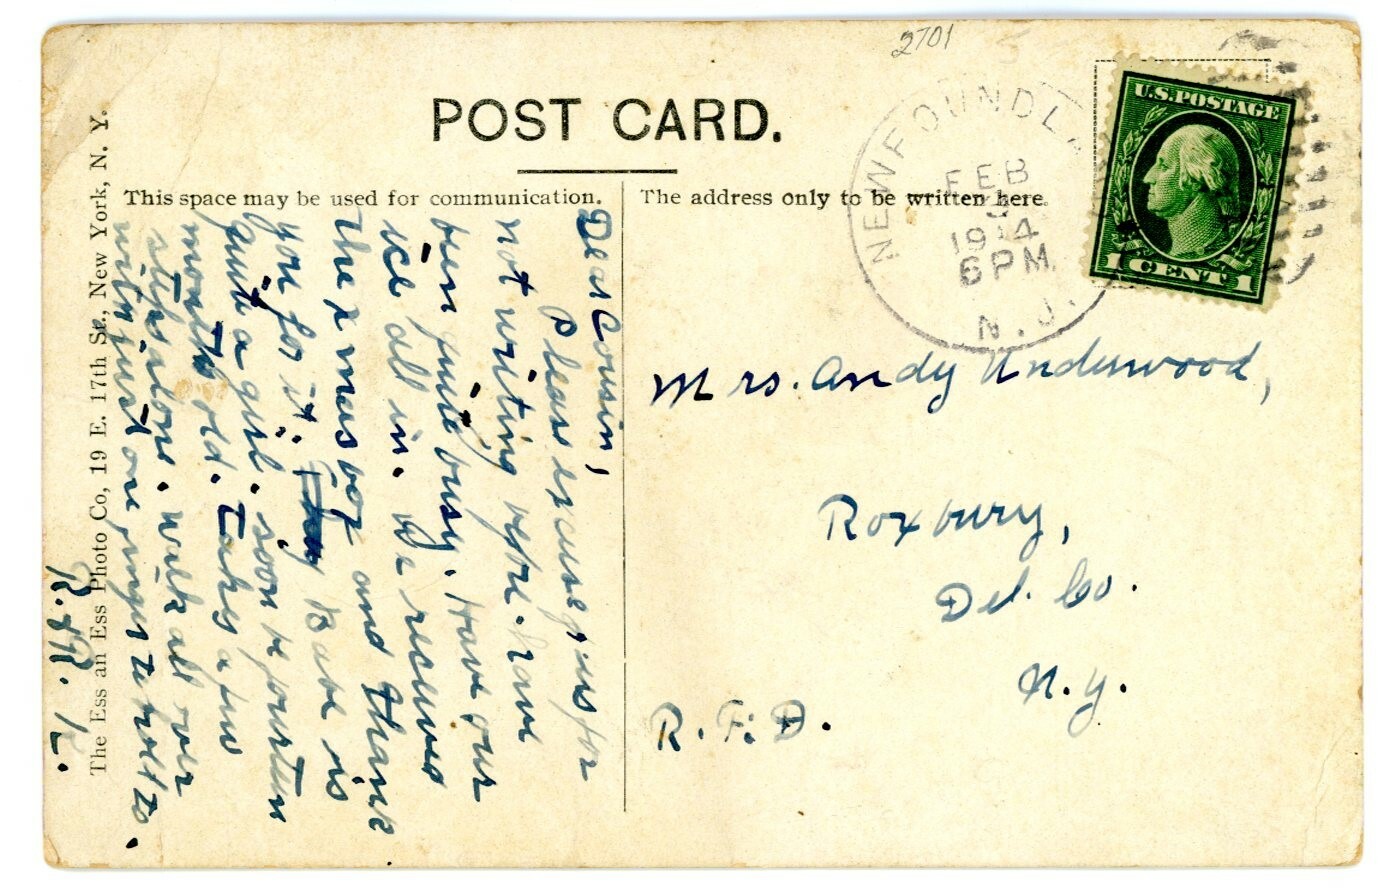 2701
POST CARD.
This space may be used for communication.
The address only to be written here.
NEWFOUNDLA
FEB
1914
6PM
N.J.
U.S. POSTAGE
1 CENT 1
Dear Cousin,
Please excuse us for
not writing before. have
been quite busy. Have our
ice all in. We received
the xmas box and thank
you for it. Kate is
quite a girl. soon be fourteen
months old. Takes a few
steps alone. walk all over
with just one finger to hold to.
R. R. K.
Mrs. Andy Underwood,
Roxbury,
Del. Co.
N.Y.
R.F.D.
The Ess an Ess Photo Co, 19 E. 17th St., New York, N. Y.